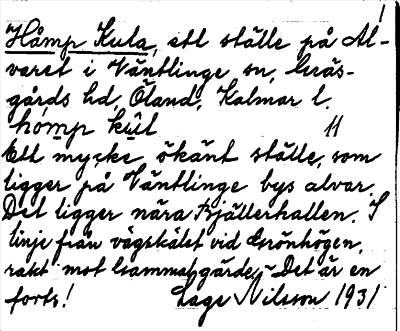 Håmp Kula, ett ställe på Al-
varet i Väntlinge sn, Gräs-
gårds hd, Öland, Kalmar l.
hómp kùl 11
Ett mycke ökänt ställe, som
ligger på Väntlinge bys alvar.
Det ligger nära Bjällerhallen. I
linje från vägskälet vid Grönhögen,
rakt mot Gammalsgärde. Det är en
forts! Lage Nilsson 1931